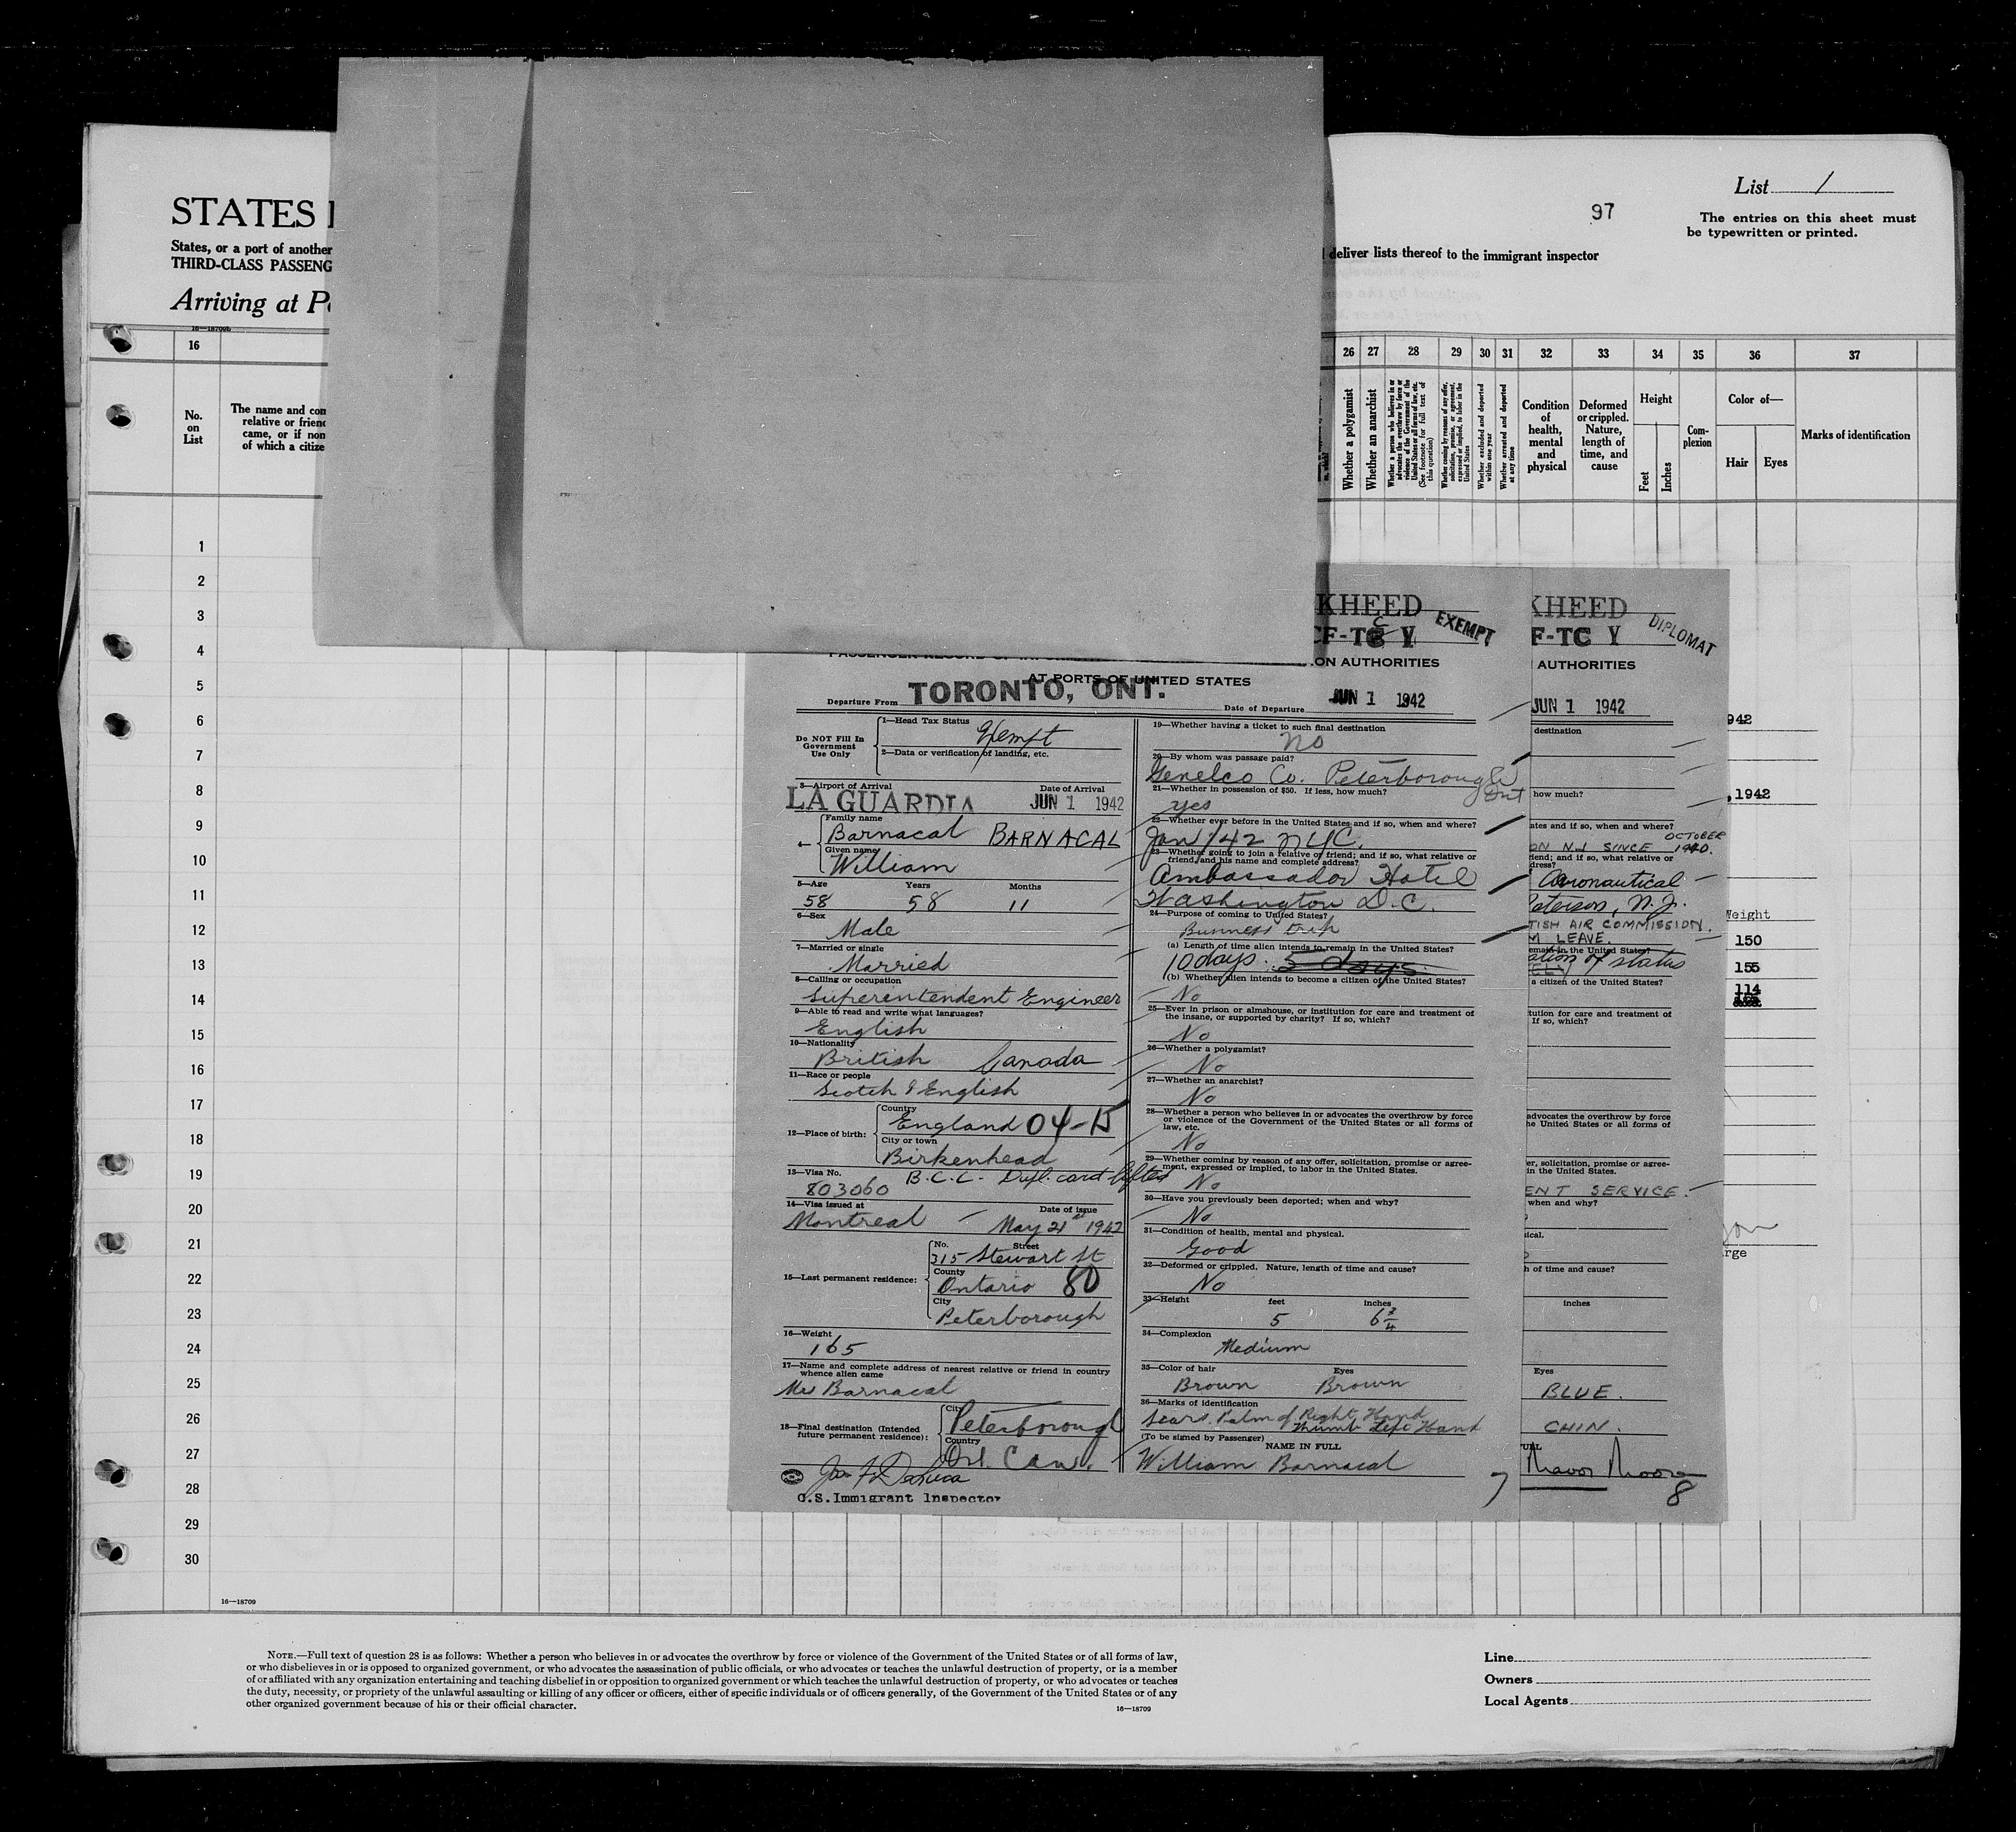 STATES
States, or a port of another
THIRD-CLASS PASSENG
Arriving at
16—18709b
97
List 1
The entries on this sheet must
be typewritten or printed.
deliver lists thereof to the immigrant inspector
16
No.
on
List
The name and com
relative or friend
came, or if non
of which a citize
26 27 28 29 30 31 32 33 34 35 36 37
Whether a polygamist
Whether an anarchist
Whether a person who believes in or
advocates the overthrow by force or
violence of the Government of the
United States or all forms of law, etc.
(See footnote for full text of
this question)
Whether coming by reason of any offer,
solicitation, promise, or agreement,
expressed or implied, to labor in the
United States
Whether excluded and deported
within one year
Whether arrested and deported
at any time
Condition
of
health,
mental
and
physical
Deformed
or crippled.
Nature,
length of
time, and
cause
Height
Feet
Inches
Com-
plexion
Color of—
Hair
Eyes
Marks of identification
1
2
3
4
5
6
7
8
9
10
11
12
13
14
15
16
17
18
19
20
21
22
23
24
25
26
27
28
29
30
16—18709
KHEED
CF-TC Y
EXEMPT
ON AUTHORITIES
AT PORTS OF UNITED STATES
Departure From TORONTO, ONT. Date of Departure JUN 1 1942
Do NOT Fill In
Government
Use Only
1—Head Tax Status
Exempt
2—Data or verification of landing, etc.
3—Airport of Arrival Date of Arrival
LA GUARDIA JUN 1 1942
4—
Family name
Barnacal BARNACAL
Given name
William
5—Age Years Months
58 58 11
6—Sex
Male
7—Married or single
Married
8—Calling or occupation
Superentendent Engineer
9—Able to read and write what languages?
English
10—Nationality
British Canada
11—Race or people
Scotch & English
12—Place of birth:
Country
England 04-15
City or town
Birkenhead
13—Visa No.
803060 B.C.C. - Dupl. card lifted
14—Visa issued at Date of issue
Montreal - May 21st 1942
15—Last permanent residence:
No. Street
315 Stewart St
County
Ontario 80
City
Peterborough
16—Weight
165
17—Name and complete address of nearest relative or friend in country
whence alien came
Mrs Barnacal
18—Final destination (Intended
future permanent residence):
City
Peterborough
Country
Ont. Can.
U.S. Immigrant Inspector
19—Whether having a ticket to such final destination
No
20—By whom was passage paid?
Genelco Co. Peterborough
Ont
21—Whether in possession of $50. If less, how much?
yes
22—Whether ever before in the United States and if so, when and where?
Jan 1/42 NYC.
23—Whether going to join a relative or friend; and if so, what relative or
friend, and his name and complete address?
Ambassador Hotel
Washington D.C.
24—Purpose of coming to United States?
Business trip
(a) Length of time alien intends to remain in the United States?
10 days. 5 days.
(b) Whether alien intends to become a citizen of the United States?
No
25—Ever in prison or almshouse, or institution for care and treatment of
the insane, or supported by charity? If so, which?
No
26—Whether a polygamist?
No
27—Whether an anarchist?
No
28—Whether a person who believes in or advocates the overthrow by force
or violence of the Government of the United States or all forms of
law, etc.
No
29—Whether coming by reason of any offer, solicitation, promise or agree-
ment, expressed or implied, to labor in the United States.
No
30—Have you previously been deported; when and why?
No
31—Condition of health, mental and physical.
Good
32—Deformed or crippled. Nature, length of time and cause?
No
33—Height feet inches
5 6 3/4
34—Complexion
Medium
35—Color of hair Eyes
Brown Brown
36—Marks of identification
Scars. Palm of Right Hand
Thumb Left Hand
(To be signed by Passenger)
NAME IN FULL
William Barnacal
7
KHEED
F-TC Y
DIPLOMAT
AUTHORITIES
JUN 1 1942
destination
how much?
ates and if so, when and where?
OCTOBER
ON N.J SINCE 1940.
iend; and if so, what relative or
dress?
Aeronautical
Paterson, N.J.
TISH AIR COMMISSION.
M LEAVE.
emain in the United States?
ation of status
a citizen of the United States?
tution for care and treatment of
If so, which?
advocates the overthrow by force
he United States or all forms of
er, solicitation, promise or agree-
in the United States.
ENT SERVICE.
when and why?
ical.
h of time and cause?
inches
Eyes
BLUE.
CHIN.
8
942
, 1942
Weight
150
155
114
rge
NOTE.—Full text of question 28 is as follows: Whether a person who believes in or advocates the overthrow by force or violence of the Government of the United States or of all forms of law,
or who disbelieves in or is opposed to organized government, or who advocates the assassination of public officials, or who advocates or teaches the unlawful destruction of property, or is a member
of or affiliated with any organization entertaining and teaching disbelief in or opposition to organized government or which teaches the unlawful destruction of property, or who advocates or teaches
the duty, necessity, or propriety of the unlawful assaulting or killing of any officer or officers, either of specific individuals or of officers generally, of the Government of the United States or of any
other organized government because of his or their official character.
16—18709
Line
Owners
Local Agents